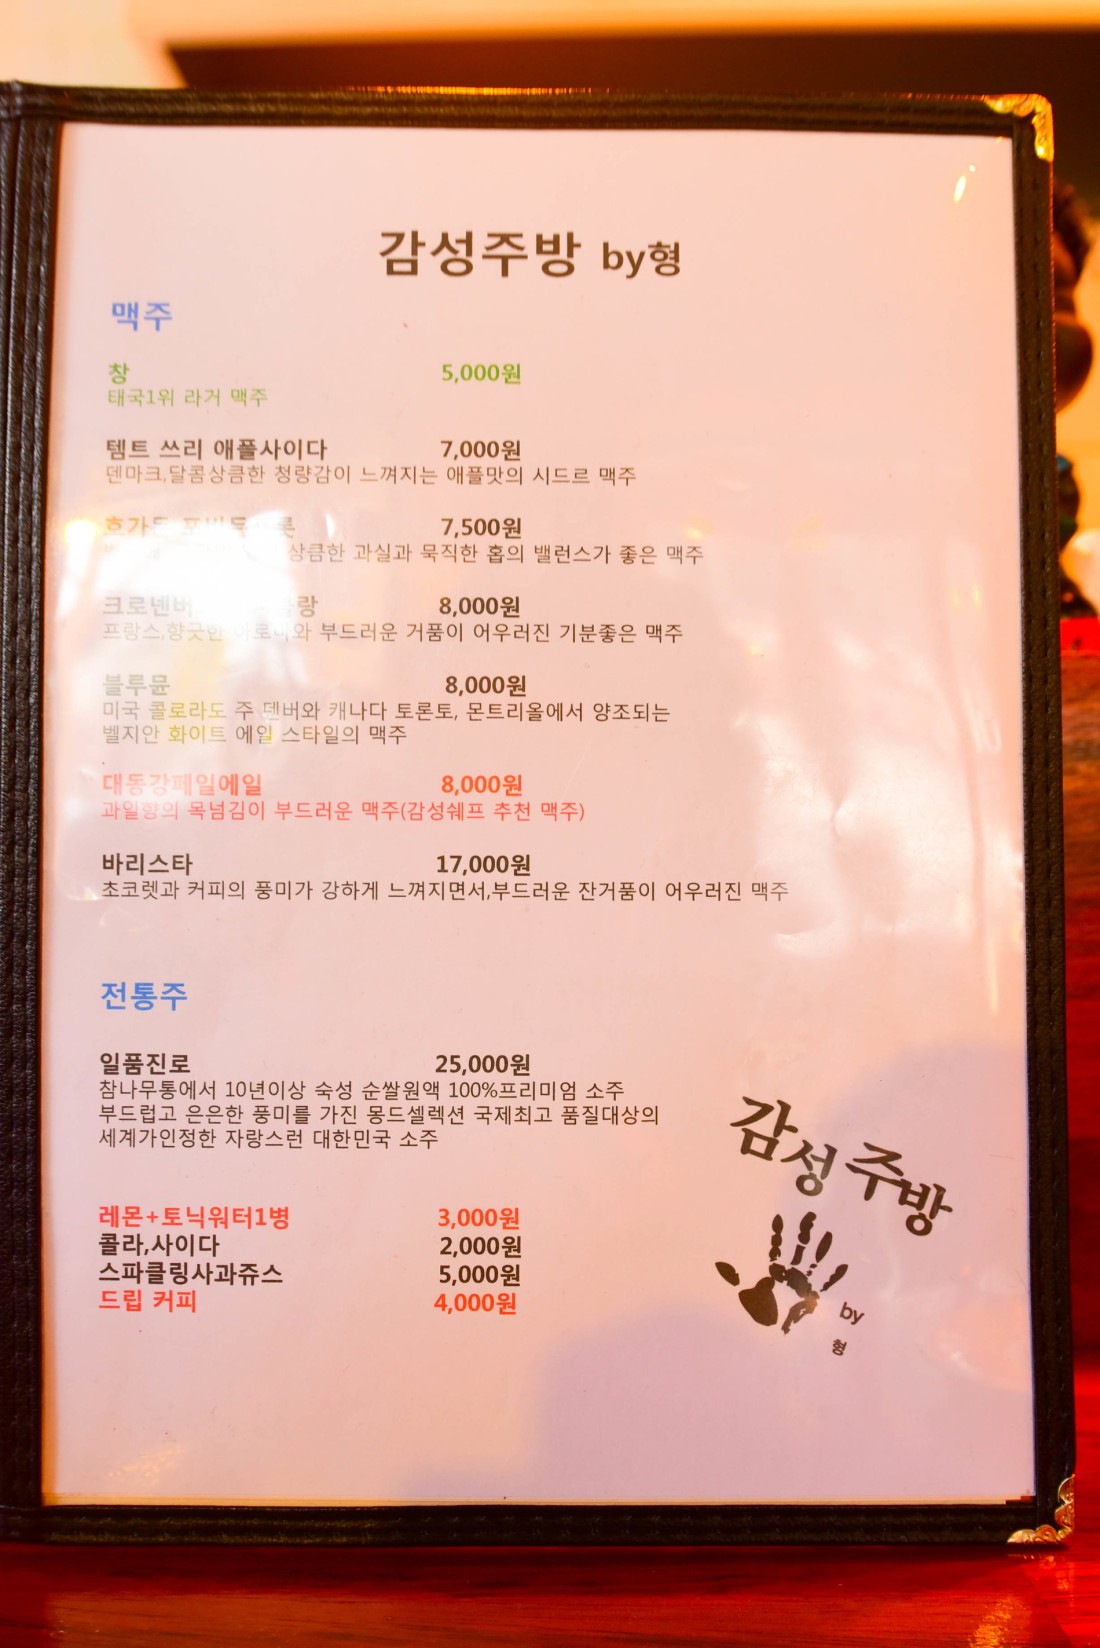 감성주방 by형
맥주
창 5,000원
태국1위 라거 맥주
템트 쓰리 애플사이다 7,000원
덴마크,달콤상큼한 청량감이 느껴지는 애플맛의 시드르 맥주
7,500원
상큼한 과실과 묵직한 홉의 밸런스가 좋은 맥주
8,000원
프랑스,향긋한 아로마와 부드러운 거품이 어우러진 기분좋은 맥주
블루문 8,000원
미국 콜로라도 주 덴버와 캐나다 토론토, 몬트리올에서 양조되는
벨지안 화이트 에일 스타일의 맥주
대동강페일에일 8,000원
과일향의 목넘김이 부드러운 맥주(감성쉐프 추천 맥주)
바리스타 17,000원
초코렛과 커피의 풍미가 강하게 느껴지면서,부드러운 잔거품이 어우러진 맥주
전통주
일품진로 25,000원
참나무통에서 10년이상 숙성 순쌀원액 100%프리미엄 소주
부드럽고 은은한 풍미를 가진 몽드셀렉션 국제최고 품질대상의
세계가인정한 자랑스런 대한민국 소주
레몬+토닉워터1병 3,000원
콜라,사이다 2,000원
스파클링사과쥬스 5,000원
드립 커피 4,000원
감성주방
by
형